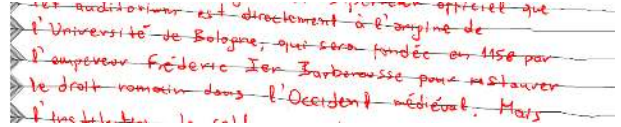 cet auditorium est directement à l'origine de
l'Université de Bologne, qui sera fondée en 1158 par
l'empereur Fréderic Ier Barberousse pour restaurer
le droit romain dans l'Occident médiéval. Mais